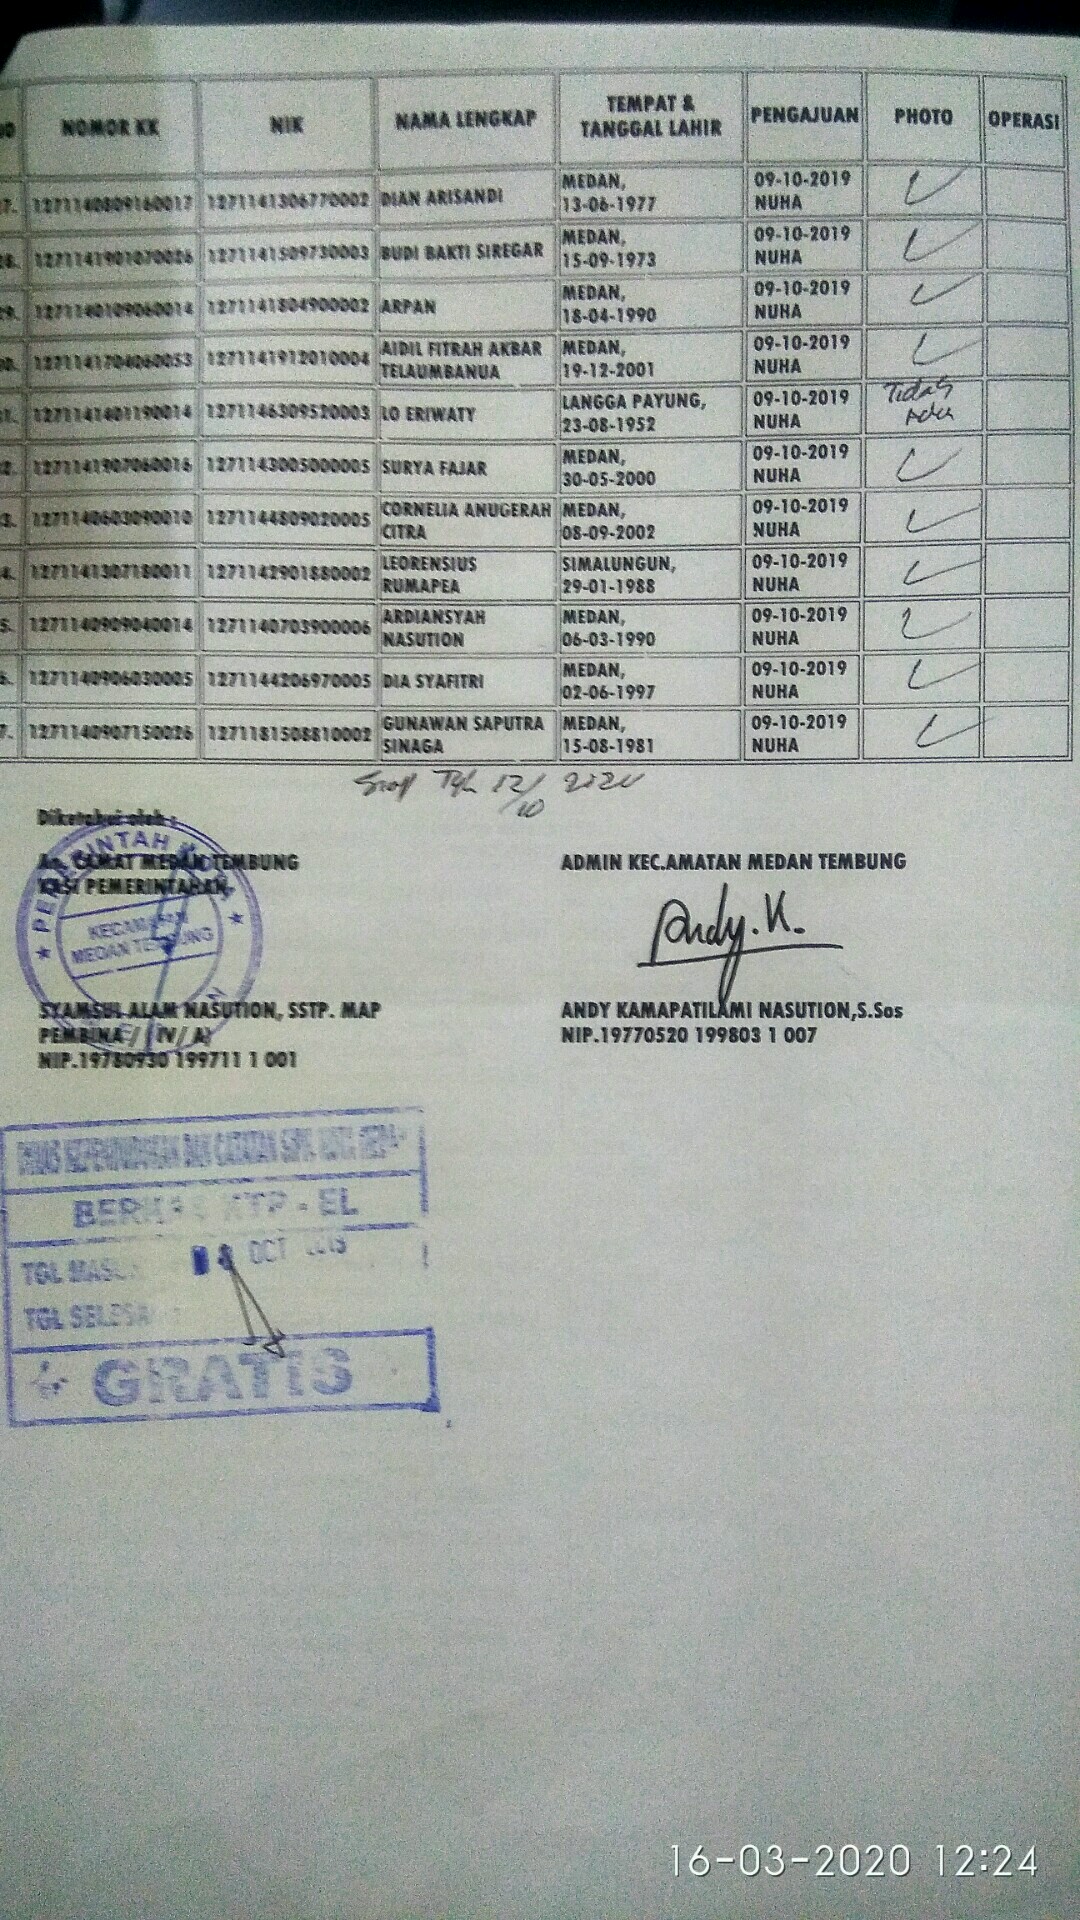 NOMOR KK NIK NAMA LENGKAP TEMPAT & TANGGAL LAHIR PENGAJUAN PHOTO OPERASI
7. 1271140809160017 1271141306770002 DIAN ARISANDI MEDAN, 13-06-1977 09-10-2019 NUHA
28. 1271141901070026 1271141509730003 BUDI BAKTI SIREGAR MEDAN, 15-09-1973 09-10-2019 NUHA
29. 1271140109060014 1271141804900002 ARPAN MEDAN, 18-04-1990 09-10-2019 NUHA
0. 1271141704060053 1271141912010004 AIDIL FITRAH AKBAR TELAUMBANUA MEDAN, 19-12-2001 09-10-2019 NUHA
1. 1271141401190014 1271146309520003 LO ERIWATY LANGGA PAYUNG, 23-08-1952 09-10-2019 NUHA Tidak Ada
2. 1271141907060016 1271143005000005 SURYA FAJAR MEDAN, 30-05-2000 09-10-2019 NUHA
3. 1271140603090010 1271144809020005 CORNELIA ANUGERAH CITRA MEDAN, 08-09-2002 09-10-2019 NUHA
4. 1271141307180011 1271142901880002 LEORENSIUS RUMAPEA SIMALUNGUN, 29-01-1988 09-10-2019 NUHA
5. 1271140909040014 1271140703900006 ARDIANSYAH NASUTION MEDAN, 06-03-1990 09-10-2019 NUHA
6. 1271140906030005 1271144206970005 DIA SYAFITRI MEDAN, 02-06-1997 09-10-2019 NUHA
7. 1271140907150026 1271181508810002 GUNAWAN SAPUTRA SINAGA MEDAN, 15-08-1981 09-10-2019 NUHA
Tgl 12/10
Diketahui oleh :
An. CAMAT MEDAN TEMBUNG
KASI PEMERINTAHAN
ADMIN KEC.AMATAN MEDAN TEMBUNG
PEMERINTAH
KECAMATAN
MEDAN TEMBUNG
Andy.K.
SYAMSUL ALAM NASUTION, SSTP. MAP
PEMBINA / ( IV/ A)
NIP.19780930 199711 1 001
ANDY KAMAPATILAMI NASUTION,S.Sos
NIP.19770520 199803 1 007
DINAS KEPENDUDUKAN DAN CATATAN SIPIL KOTA MEDAN
BERKAS KTP - EL
TGL MASUK OCT
TGL SELESAI
GRATIS
16-03-2020 12:24